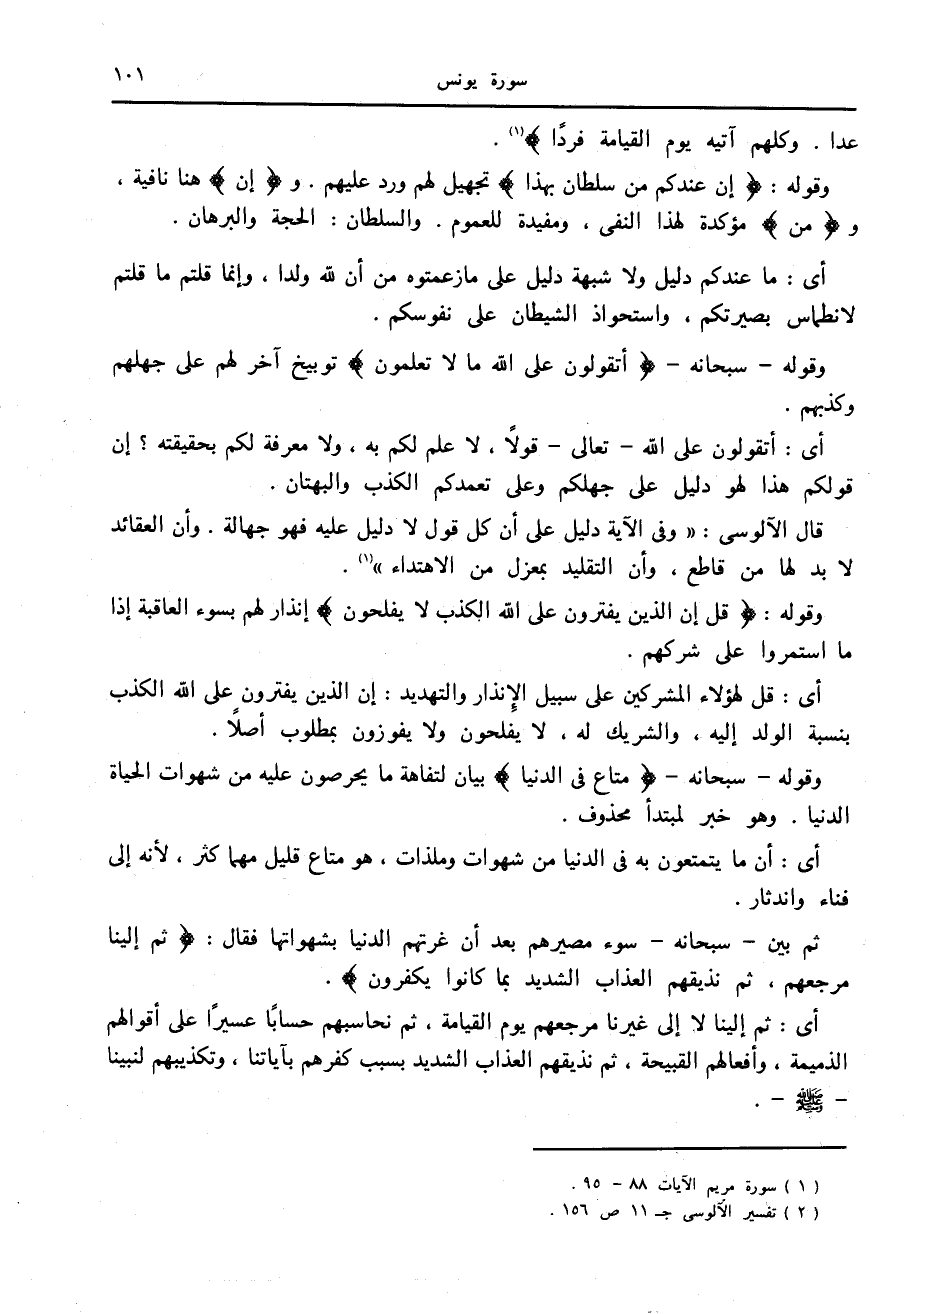 سورة يونس ١٠١
عدا . وكلهم آتيه يوم القيامة فردًا ﴾(١) .
وقوله : ﴿ إن عندكم من سلطان بهذا ﴾ تجهيل لهم ورد عليهم . و ﴿ إن ﴾ هنا نافية ،
و ﴿ من ﴾ مؤكدة لهذا النفى ، ومفيدة للعموم . والسلطان : الحجة والبرهان .
أى : ما عندكم دليل ولا شبهة دليل على مازعمتوه من أن لله ولدا ، وإنما قلتم ما قلتم
لانطماس بصيرتكم ، واستحواذ الشيطان على نفوسكم .
وقوله – سبحانه – ﴿ أتقولون على الله ما لا تعلمون ﴾ توبيخ آخر لهم على جهلهم
وكذبهم .
أى : أتقولون على الله – تعالى – قولاً ، لا علم لكم به ، ولا معرفة لكم بحقيقته ؟ إن
قولكم هذا لهو دليل على جهلكم وعلى تعمدكم الكذب والبهتان .
قال الآلوسى : « وفى الآية دليل على أن كل قول لا دليل عليه فهو جهالة . وأن العقائد
لا بد لها من قاطع ، وأن التقليد بمعزل من الاهتداء »(١) .
وقوله : ﴿ قل إن الذين يفترون على الله الكذب لا يفلحون ﴾ إنذار لهم بسوء العاقبة إذا
ما استمروا على شركهم .
أى : قل لهؤلاء المشركين على سبيل الإِنذار والتهديد : إن الذين يفترون على الله الكذب
بنسبة الولد إليه ، والشريك له ، لا يفلحون ولا يفوزون بمطلوب أصلاً .
وقوله – سبحانه – ﴿ متاع فى الدنيا ﴾ بيان لتفاهة ما يحرصون عليه من شهوات الحياة
الدنيا . وهو خبر لمبتدأ محذوف .
أى : أن ما يتمتعون به فى الدنيا من شهوات وملذات ، هو متاع قليل مهما كثر ، لأنه إلى
فناء واندثار .
ثم بين – سبحانه – سوء مصيرهم بعد أن غرتهم الدنيا بشهواتها فقال : ﴿ ثم إلينا
مرجعهم ، ثم نذيقهم العذاب الشديد بما كانوا يكفرون ﴾ .
أى : ثم إلينا لا إلى غيرنا مرجعهم يوم القيامة ، ثم نحاسبهم حسابًا عسيرًا على أقوالهم
الذميمة ، وأفعالهم القبيحة ، ثم نذيقهم العذاب الشديد بسبب كفرهم بآياتنا ، وتكذيبهم لنبينا
– ﷺ – .
( ١ ) سورة مريم الآيات ٨٨ – ٩٥ .
( ٢ ) تفسير الآلوسى جـ ١١ ص ١٥٦ .